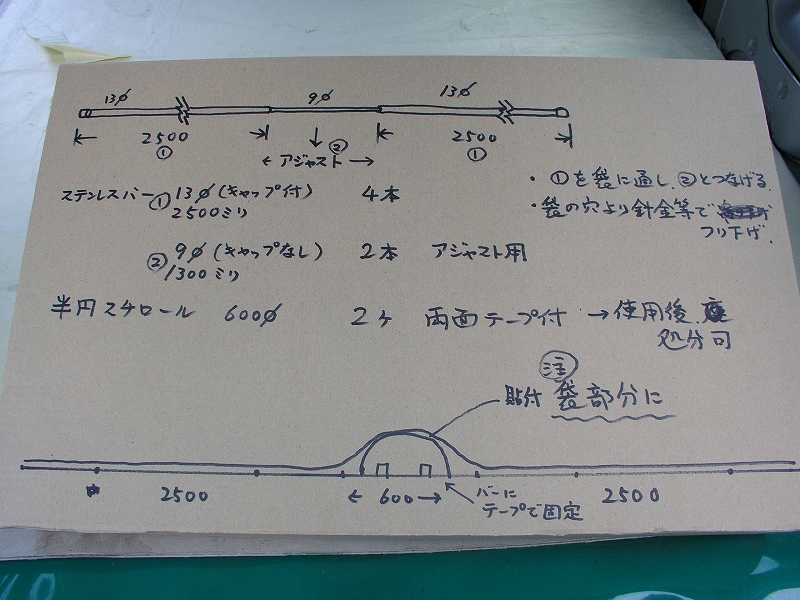 13φ 9φ 13φ
2500 2500
① ② ①
アジャスト
ステンレスバー ① 13φ (キャップ付) 4本
2500ミリ
・①を袋に通し、②とつなげる。
・袋の穴より針金等で
フリ下げ.
② 9φ (キャップなし) 2本 アジャスト用
1300ミリ
半円スチロール 600φ 2ケ 両面テープ付 →使用後、
処分可
注
貼付 袋部分に
2500 600 2500
バーに
テープで固定